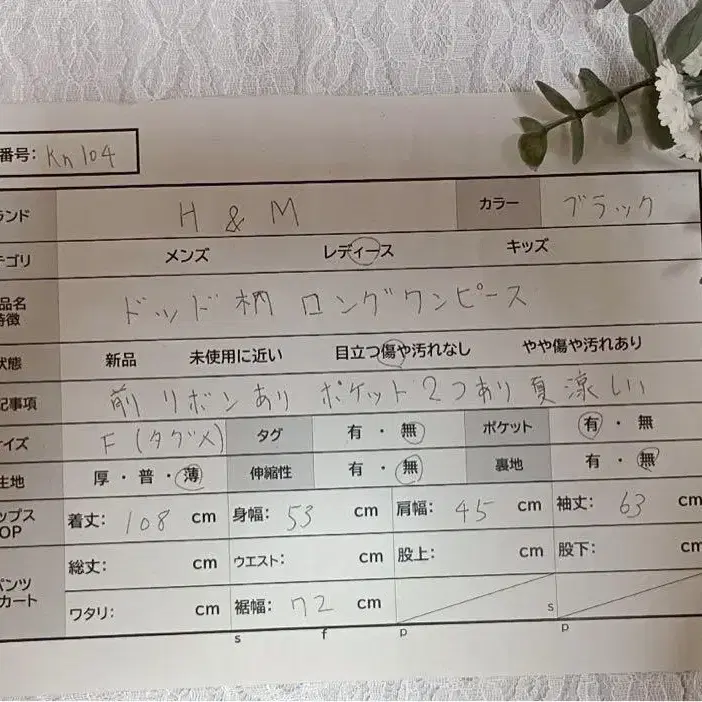 番号: Kn104
ランド H & M カラー ブラック
テゴリ メンズ レディース キッズ
品名 特徴 ドッド柄 ロングワンピース
状態 新品 未使用に近い 目立つ傷や汚れなし やや傷や汚れあり
記事項 前リボンあり ポケット2つあり 夏涼しい
イズ F (タグ メ) タグ 有 ・ 無 ポケット 有 ・ 無
生地 厚 ・ 普 ・ 薄 伸縮性 有 ・ 無 裏地 有 ・ 無
ップス OP 着丈: 108 cm 身幅: 53 cm 肩幅: 45 cm 袖丈: 63 cm
パンツ 総丈: cm ウエスト: cm 股上: cm 股下: cm
カート ワタリ: cm 裾幅: 72 cm s
s f p p